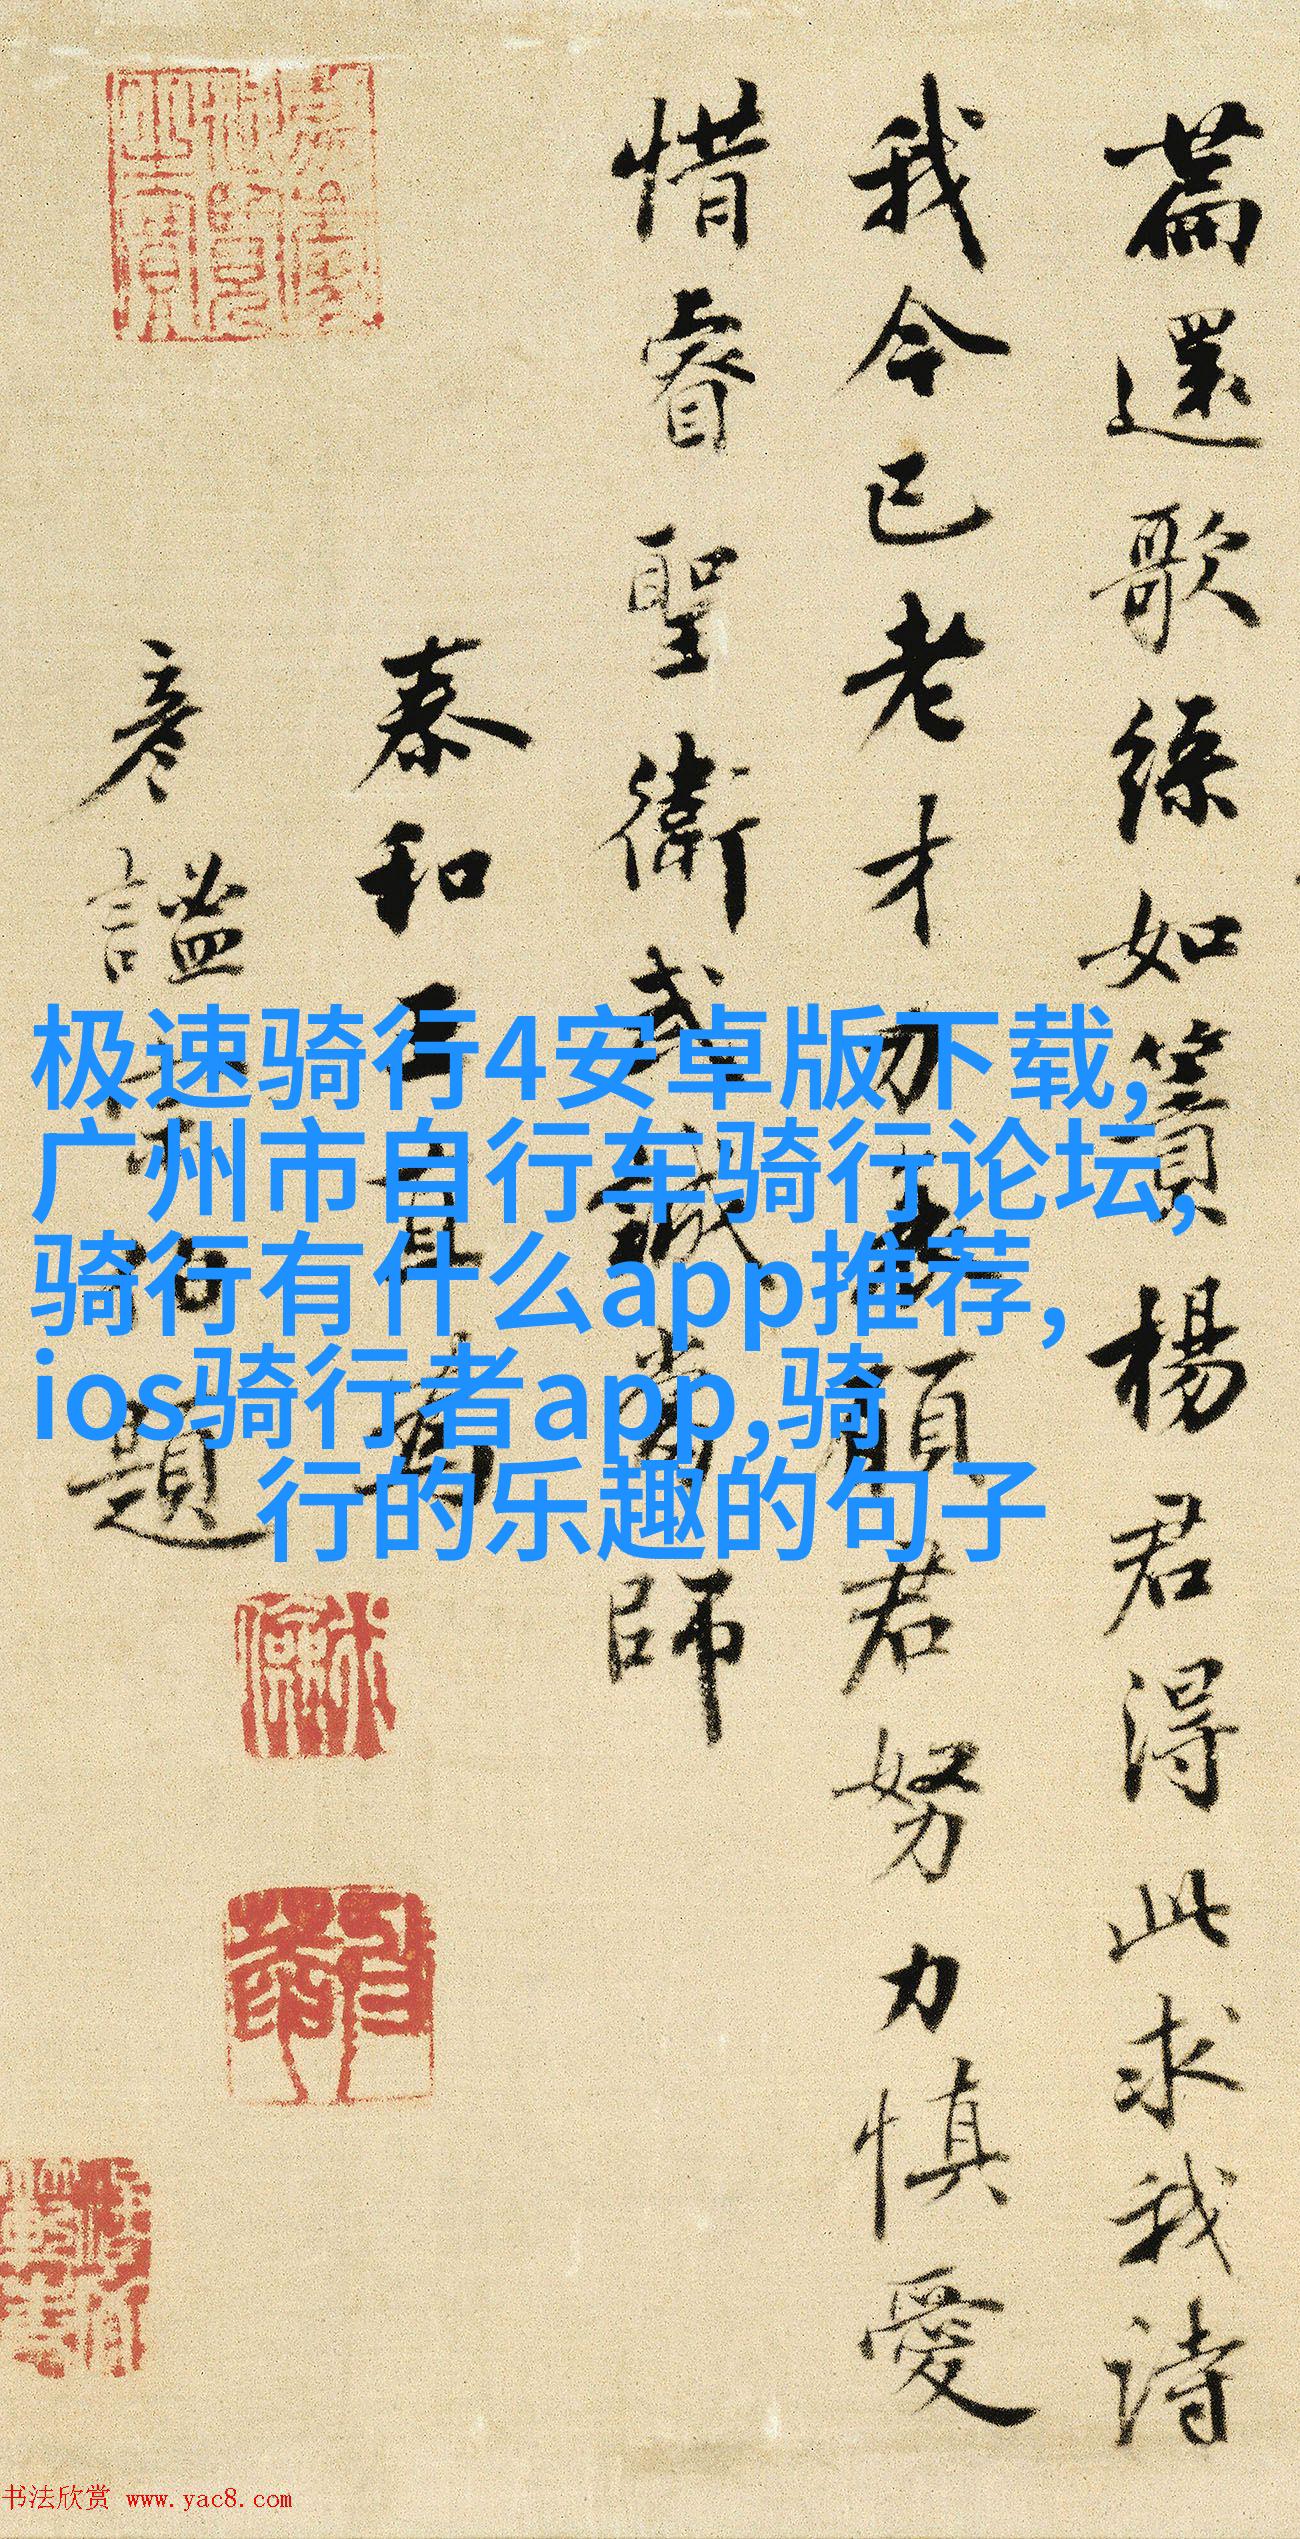 篇還歌綠如簀楊君得此求我詩
我今已老才力 願君努力慎愛
惜睿聖衛武誠當師
泰和王直為
彥謐 題
极速骑行4安卓版下载,
广州市自行车骑行论坛,
骑行有什么app推荐,
ios骑行者app,骑
行的乐趣的句子
书法欣赏 www.yac8.com